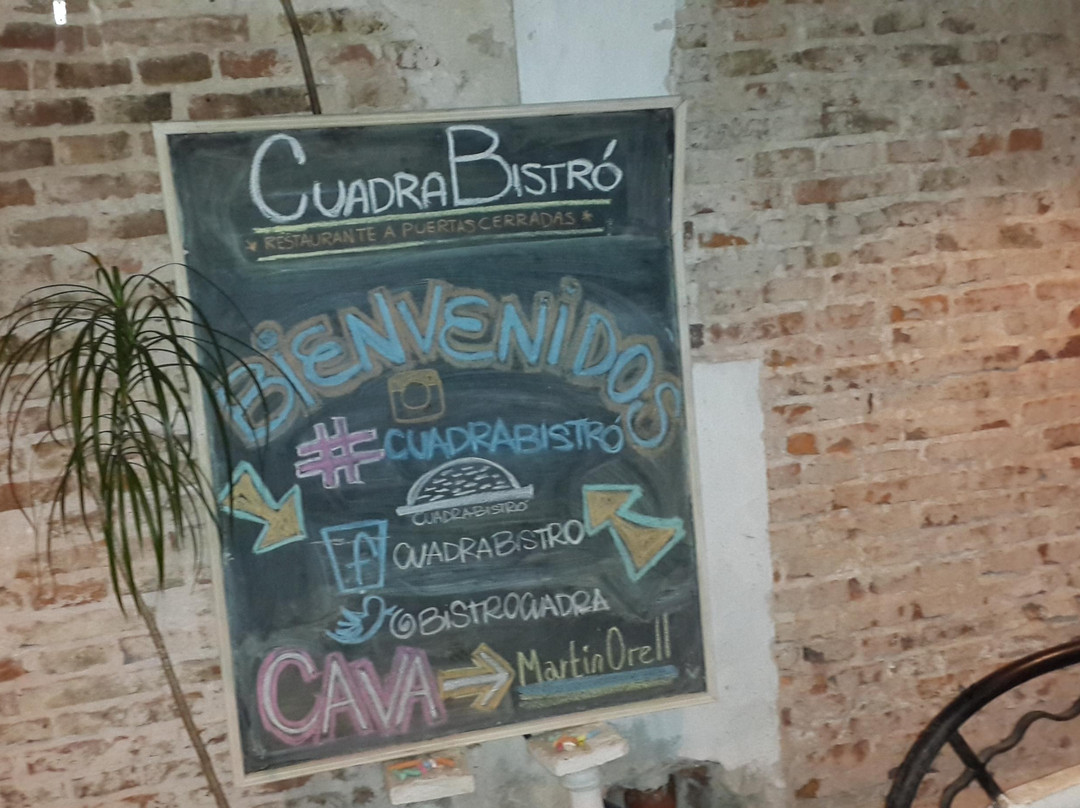 CUADRA BISTRÓ
* RESTAURANTE A PUERTAS CERRADAS *
BIENVENIDOS
#CUADRABISTRÓ
CUADRA-BISTRO
f CUADRABISTRO
@BISTROCUADRA
CAVA → Martin Orell